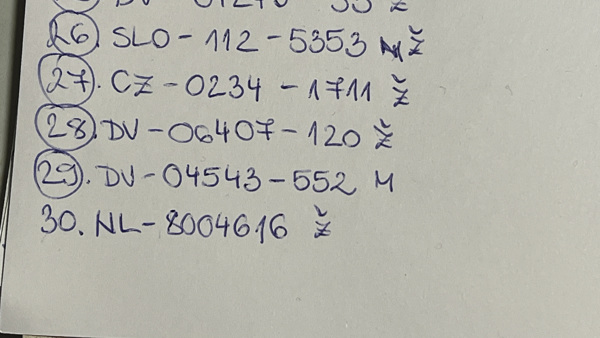 26. SLO-112-5353 Ž
27. CZ-0234-1711 Ž
28. DV-06407-120 Ž
29. DV-04543-552 M
30. NL-8004616 Ž